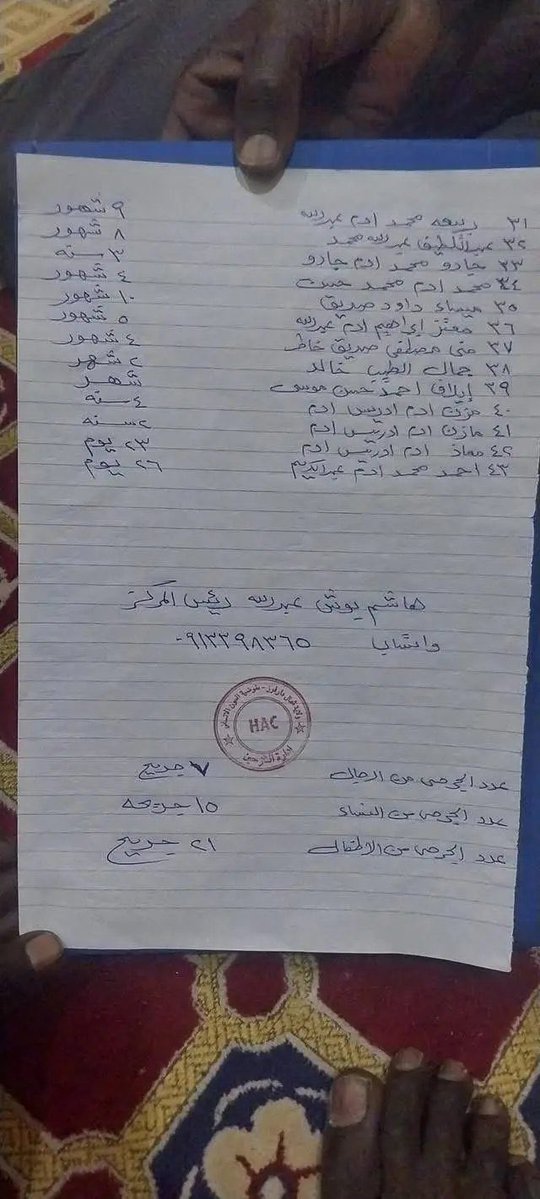 ٣١ ربيعه محمد ادم عبدالله ٩ شهور
٣٢ عبداللطيف عبدالله محمد ٨ شهور
٣٣ جادو محمد ادم جادو ٣ سنه
٣٤ محمد ادم محمد حسن ٤ شهور
٣٥ ميساء داود صديق ١٠ شهور
٣٦ معتز ابراهيم ادم عبدالله ٥ شهور
٣٧ منى مصطفى صديق خاطر ٤ شهور
٣٨ جمال الطيب خالد ٢ شهر
٣٩ إيلاف احمد حسن موسى شهر
٤٠ مزن ادم ادريس ادم ٤ سنه
٤١ مازن ادم ادريس ادم ٢ سنه
٤٢ معاذ ادم ادريس ادم ٢٣ يوم
٤٣ احمد محمد ادم عبدالكريم ٢٦ يوم
هاشم يوشى عبدالله رئيس المركز
واتشاب ٠٩١٢٢٩٨٣٦٥
ولاية شمال دارفور - مفوضية العون الانساني
HAC
عدد الجرحى من الرجال ٧ جريح
عدد الجرحى من النساء ١٥ جريحه
عدد الجرحى من الاطفال ٢١ جريح